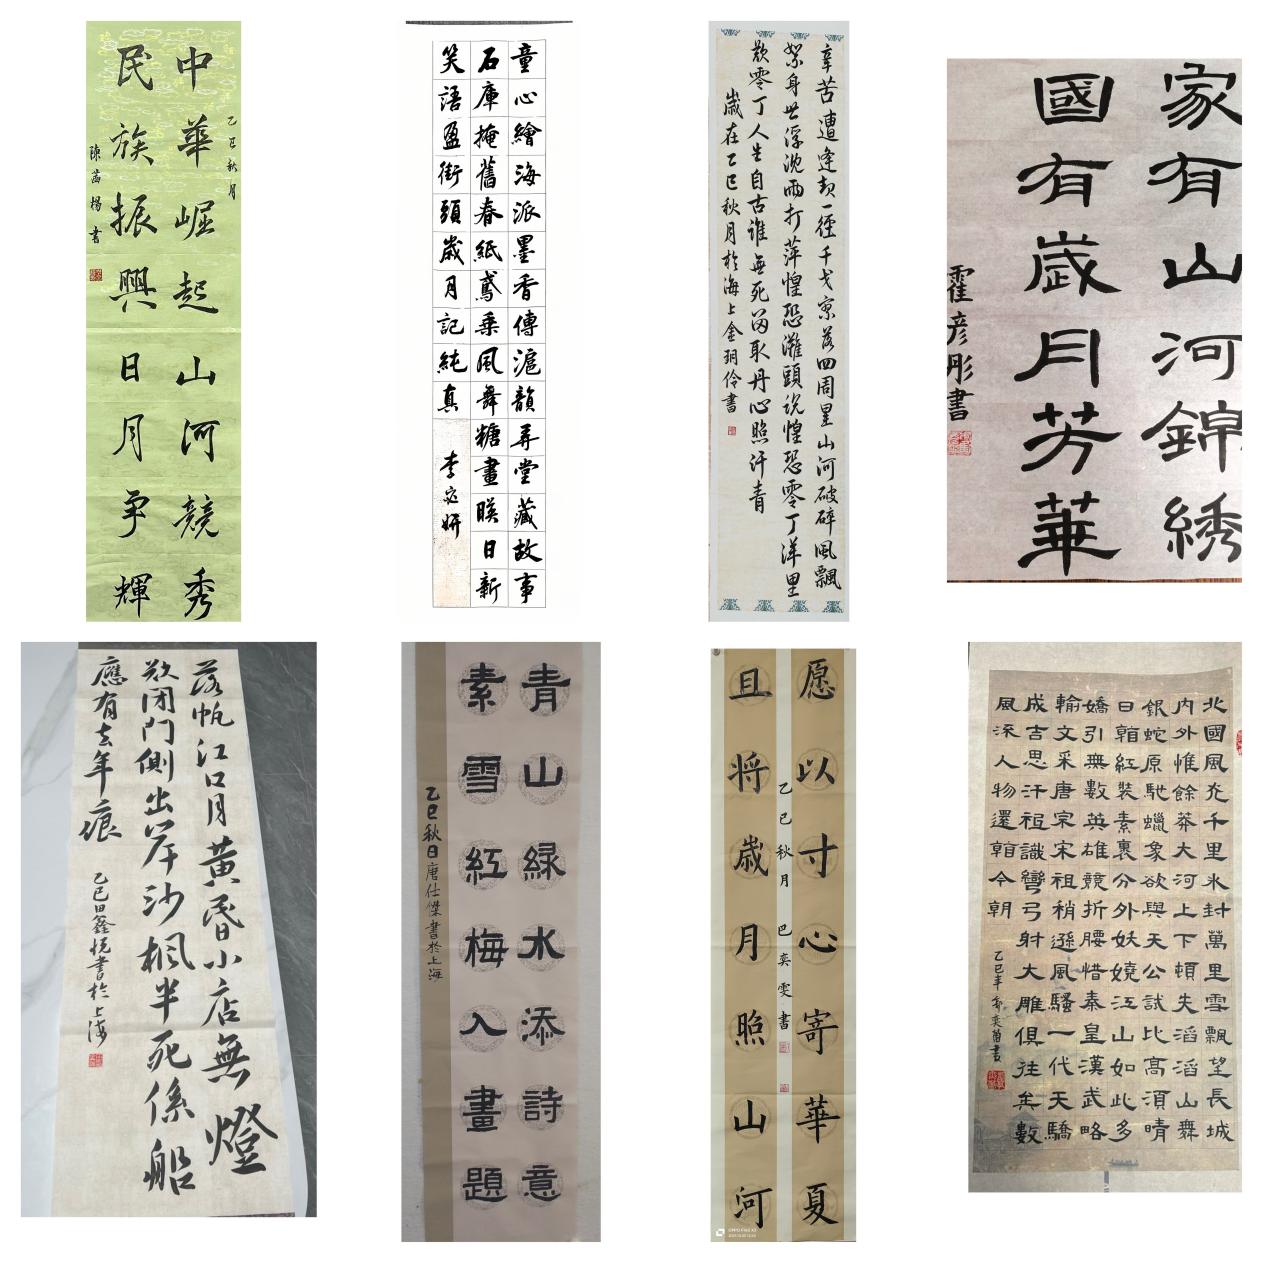 中華崛起山河競秀
民族振興日月争輝
乙巳秋月
陳茜楊書
童心繪海派墨香傳滬韻弄堂藏故事
石庫掩舊春紙鳶乘風舞糖畫映日新
笑語盈街頭歲月記純真
李宓妍
辛苦遭逢起一徑千戈寥落四周星山河破碎風飄
絮身世浮沈雨打萍惶恐灘頭说惶恐零丁洋里
歎零丁人生自古谁無死留取丹心照汗青
歲在乙巳秋月於海上金玥伶書
家有山河錦綉
國有歲月芳華
霍彦彤書
落帆江口月黄昏小店無燈
欲閉門側出岸沙楓半死係船
應有去年痕
乙巳田鑫悦書於上海
青山緑水添詩意
素雪紅梅入畫題
乙巳秋日唐仕傑書於上海
愿以寸心寄華夏
且将歲月照山河
乙巳秋月
巴奕雯書
北國風光千里氷封萬里雪飄望長城
内外惟餘莽大河上下頓失滔滔山舞
銀蛇原馳蠟象欲與天公試比高須晴
日看紅裝素裹分外妖嬈江山如此多
嬌引無數英雄競折腰惜秦皇漢武略
輸文采唐宗宋祖稍遜風騷一代天驕
成吉思汗祖識彎弓射大雕俱往矣數
風流人物還看今朝